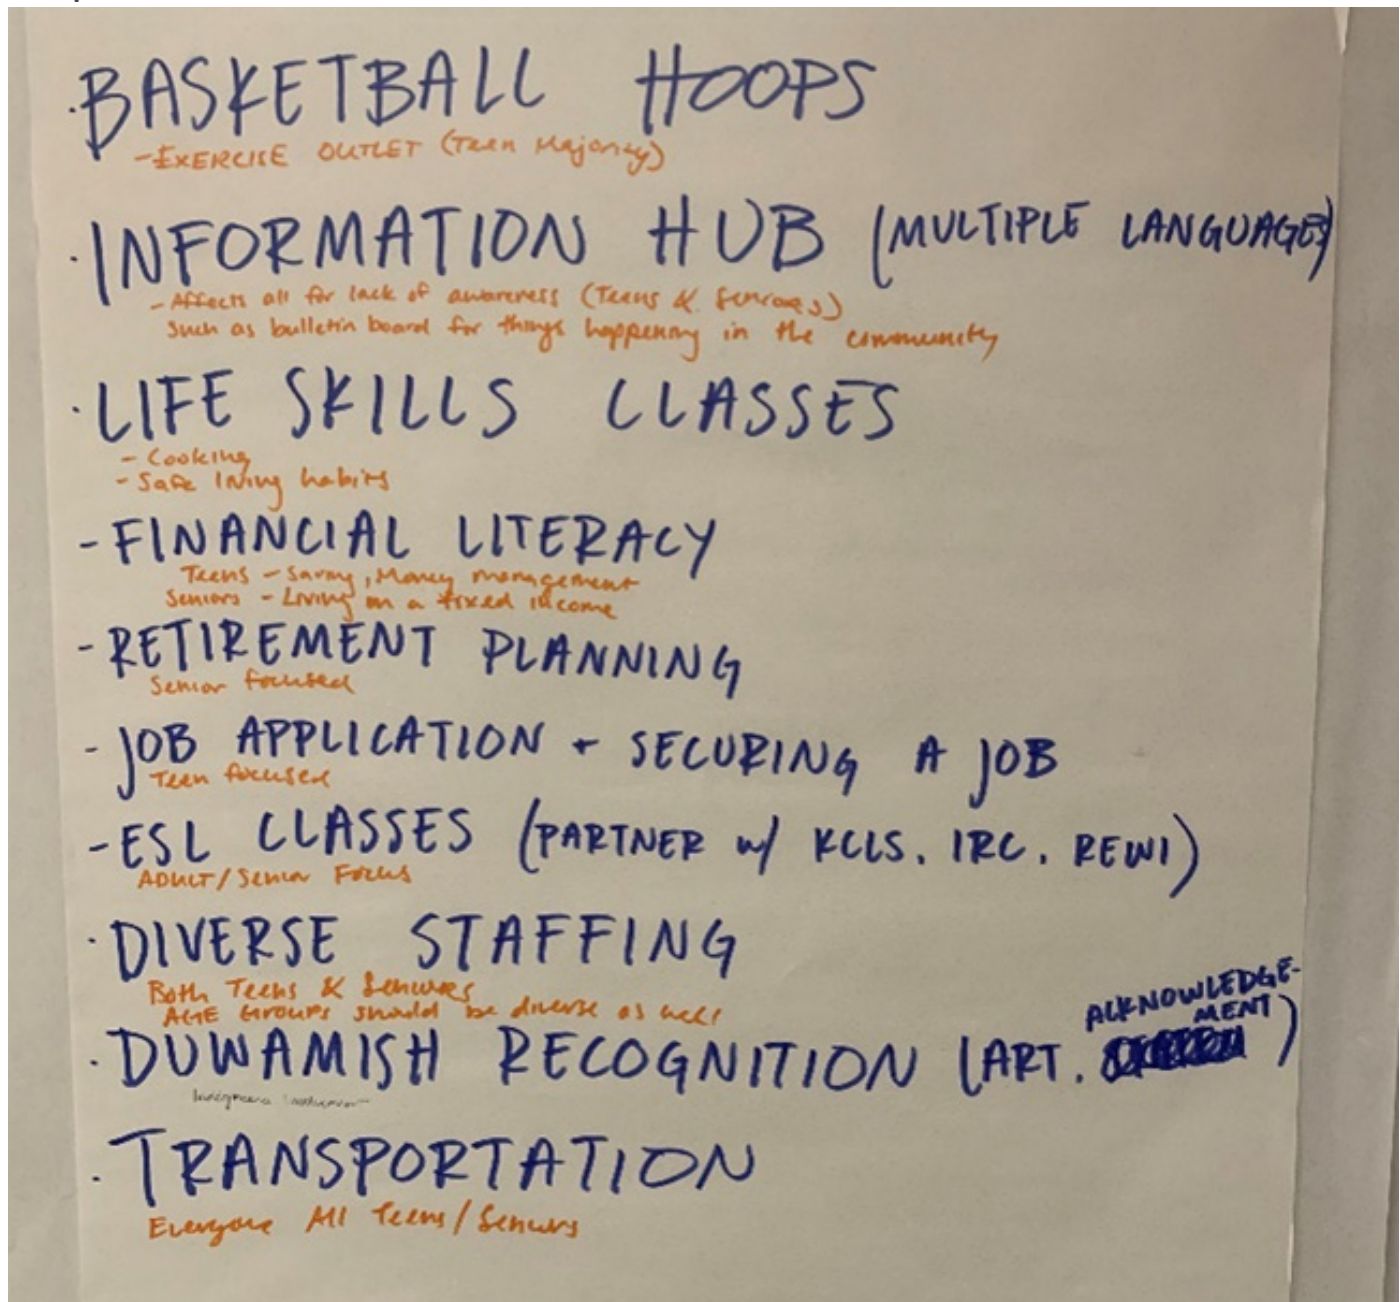 · BASKETBALL HOOPS
- EXERCISE OUTLET (Teen Majority)
· INFORMATION HUB (MULTIPLE LANGUAGES)
- Affects all for lack of awareness (Teens & Seniors)
such as bulletin board for things happening in the community
· LIFE SKILLS CLASSES
- Cooking
- Safe living habits
- FINANCIAL LITERACY
Teens - Saving, Money management
Seniors - Living on a fixed income
- RETIREMENT PLANNING
Senior focused
- JOB APPLICATION + SECURING A JOB
Teen focused
- ESL CLASSES (PARTNER w/ KCLS, IRC, REWI)
ADULT/Senior Focus
· DIVERSE STAFFING
Both Teens & Seniors
AGE Groups should be diverse as well
· DUWAMISH RECOGNITION (ART, ACKNOWLEDGE-
MENT)
· TRANSPORTATION
Everyone All Teens/Seniors